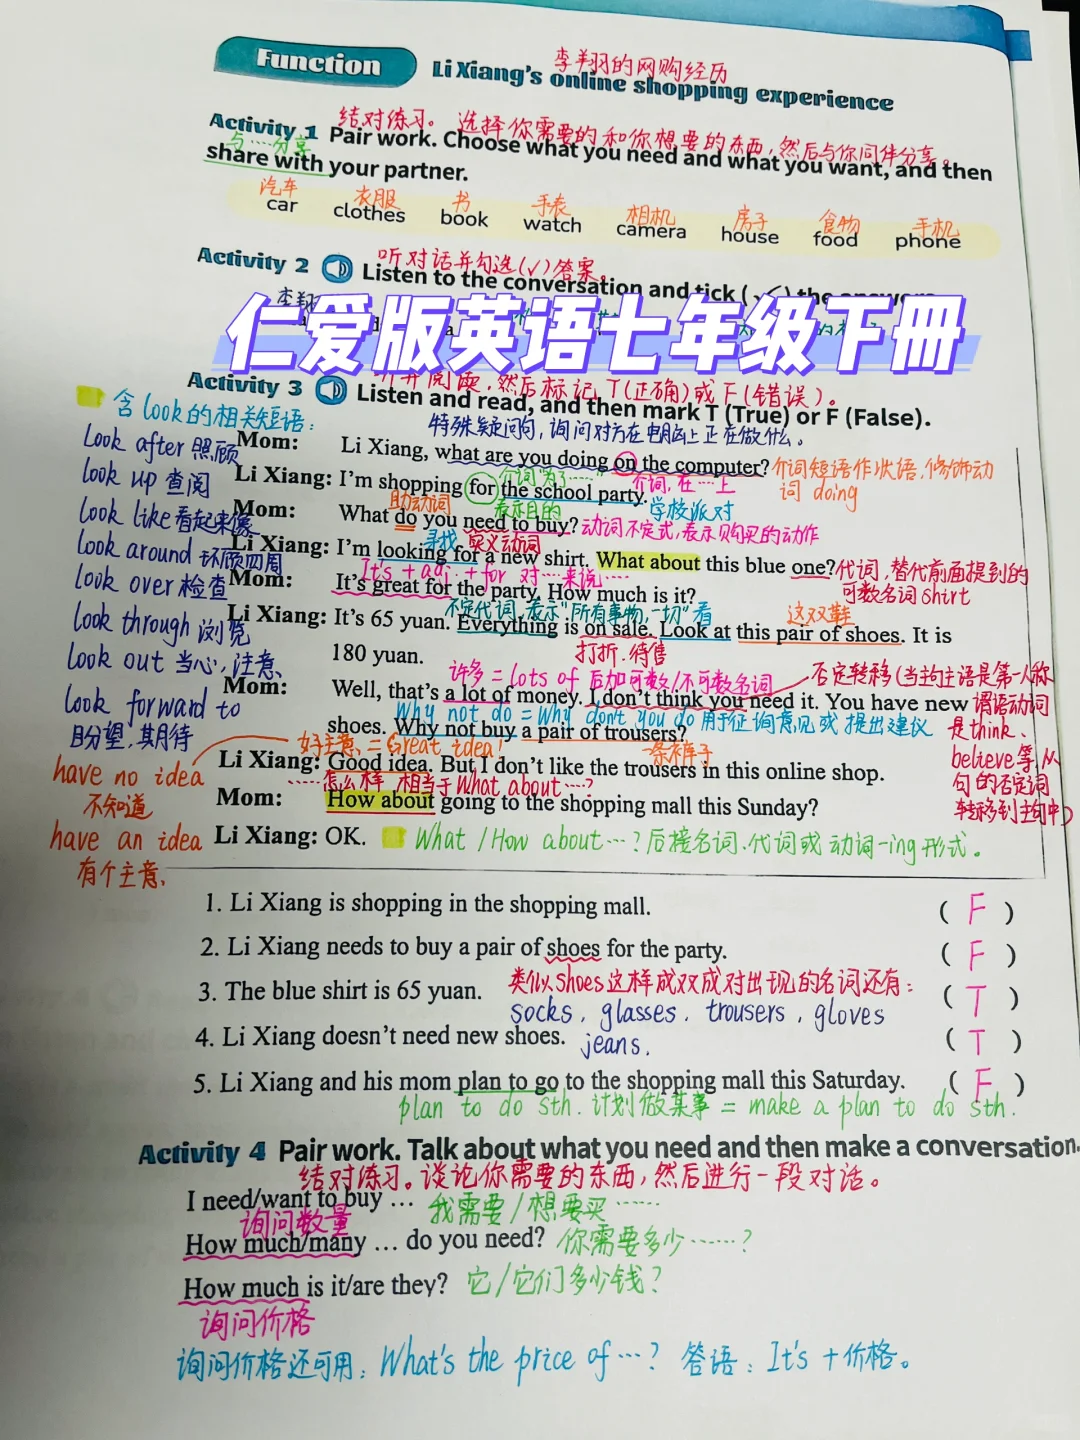 李翔的网购经历
Function Li Xiang's online shopping experience
结对练习。选择你需要的和你想要的东西,然后与你同伴分享。
Activity 1 Pair work. Choose what you need and what you want, and then
与……分享
share with your partner.
汽车 衣服 书 手表 相机 房子 食物 手机
car clothes book watch camera house food phone
听对话并勾选(√)答案。
Activity 2 Listen to the conversation and tick (√) the answers
仁爱版英语七年级下册
然后标记T(正确)或F(错误)。
Activity 3 Listen and read, and then mark T (True) or F (False).
含look的相关短语:
特殊疑问句,询问对方在电脑上正在做什么。
look after 照顾
Mom: Li Xiang, what are you doing on the computer?
介词短语作状语,修饰动词 doing
look up 查阅
介词"为了……" 介词,在…上
Li Xiang: I'm shopping for the school party.
助动词 表示目的 学校派对
look like 看起来像
Mom: What do you need to buy? 动词不定式,表示购买的动作
寻找 实义动词
look around 环顾四周
Li Xiang: I'm looking for a new shirt. What about this blue one? 代词,替代前面提到的
可数名词shirt
It's + adj. + for 对…来说……
look over 检查
Mom: It's great for the party. How much is it?
不定代词,表示"所有事物,一切" 看 这双鞋
look through 浏览
Li Xiang: It's 65 yuan. Everything is on sale. Look at this pair of shoes. It is
look out 当心,注意
180 yuan.
打折.待售
许多 = lots of 后加可数/不可数名词
否定转移(当主句主语是第一人称
look forward to
盼望,期待
Mom: Well, that's a lot of money. I don't think you need it. You have new
谓语动词
Why not do = Why don't you do 用于征询意见或提出建议
是think、
shoes. Why not buy a pair of trousers?
believe等,从
句的否定词
转移到主句中)
好主意 = Great idea! 一条裤子
have no idea
不知道
Li Xiang: Good idea. But I don't like the trousers in this online shop.
……怎么样 相当于What about…?
Mom: How about going to the shopping mall this Sunday?
have an idea
有个主意
Li Xiang: OK. What / How about…? 后接名词、代词或动词-ing形式。
1. Li Xiang is shopping in the shopping mall. ( F )
2. Li Xiang needs to buy a pair of shoes for the party. ( F )
类似shoes这样成双成对出现的名词还有:
3. The blue shirt is 65 yuan. ( T )
socks, glasses, trousers, gloves
4. Li Xiang doesn't need new shoes. ( T )
jeans.
5. Li Xiang and his mom plan to go to the shopping mall this Saturday. ( F )
plan to do sth. 计划做某事 = make a plan to do sth.
Activity 4 Pair work. Talk about what you need and then make a conversation.
结对练习。谈论你需要的东西,然后进行一段对话。
I need/want to buy … 我需要/想要买……
询问数量
How much/many … do you need? 你需要多少……?
How much is it/are they? 它/它们多少钱?
询问价格
询问价格还可用: What's the price of …? 答语: It's + 价格。